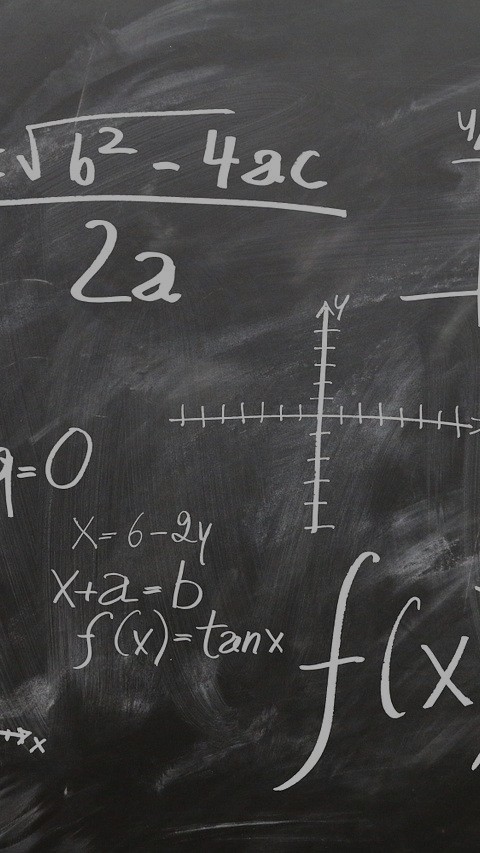 √b²-4ac
2a
y
q=0
x=6-2y
x+a=b
f(x)=tanx
f(x